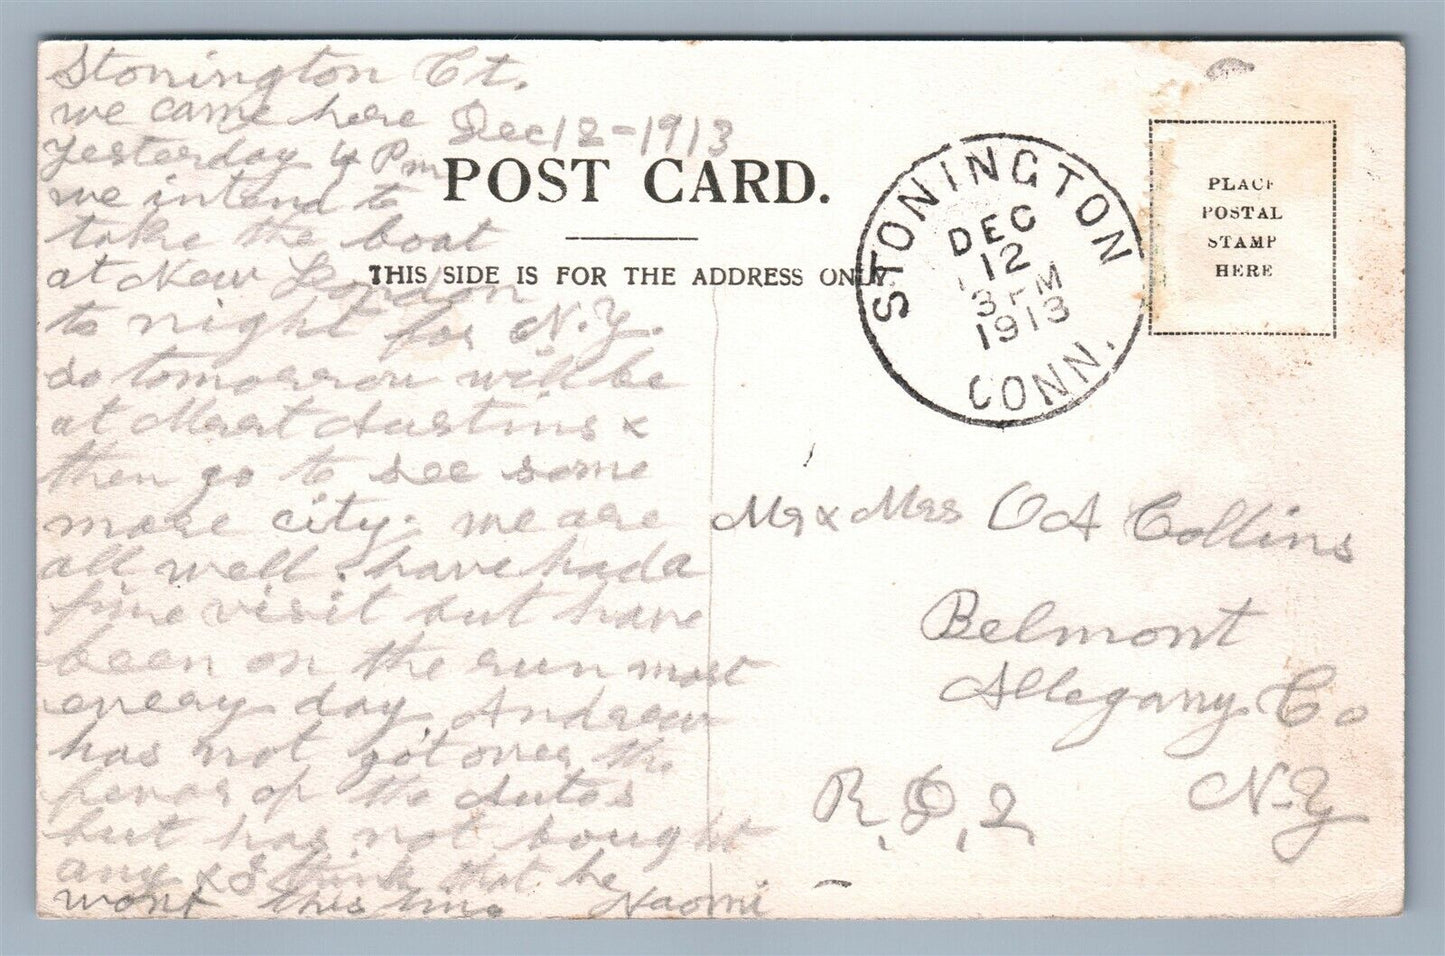 Stonington Ct.
we came here Dec 12-1913
yesterday 4 Pm
we intend to
take the boat
at New London
to night for N.Y.
so tomorrow will be
at Mert Austins &
then go to see some
more city. we are
all well. have had a
fine visit but have
been on the run most
every day. Andrew
has not got over the
fever of the Autos
but has not bought
any & I think that he
wont this time Naomi
POST CARD.
THIS SIDE IS FOR THE ADDRESS ONLY.
STONINGTON
DEC
12
3 PM
1913
CONN.
PLACE
POSTAL
STAMP
HERE
Mr & Mrs O A Collins
Belmont
Allegany Co
R.F.D.2 N-Y